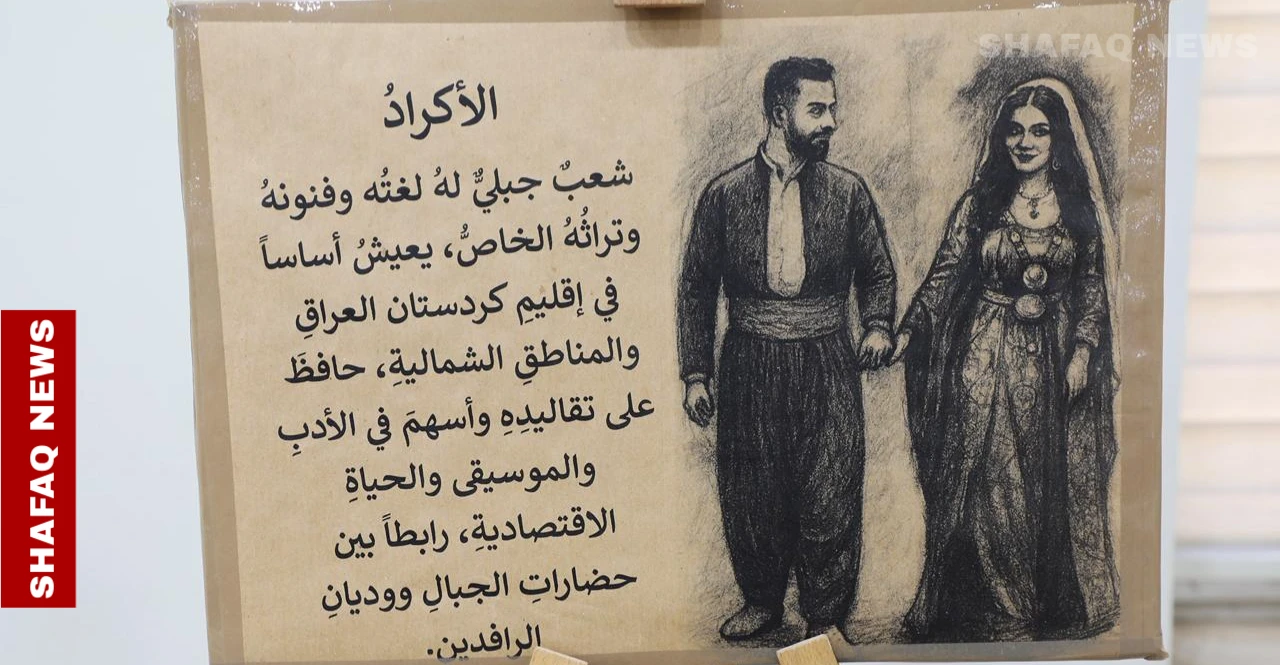 SHAFAQ NEWS
الأكرادُ
شعبٌ جبليٌّ لهُ لغتُه وفنونهُ
وتراثُهُ الخاصُّ، يعيشُ أساساً
في إقليمِ كردستان العراقِ
والمناطقِ الشماليةِ، حافظَ
على تقاليدِهِ وأسهمَ في الأدبِ
والموسيقى والحياةِ
الاقتصاديةِ، رابطاً بين
حضاراتِ الجبالِ ووديانِ
الرافدين.
SHAFAQ NEWS